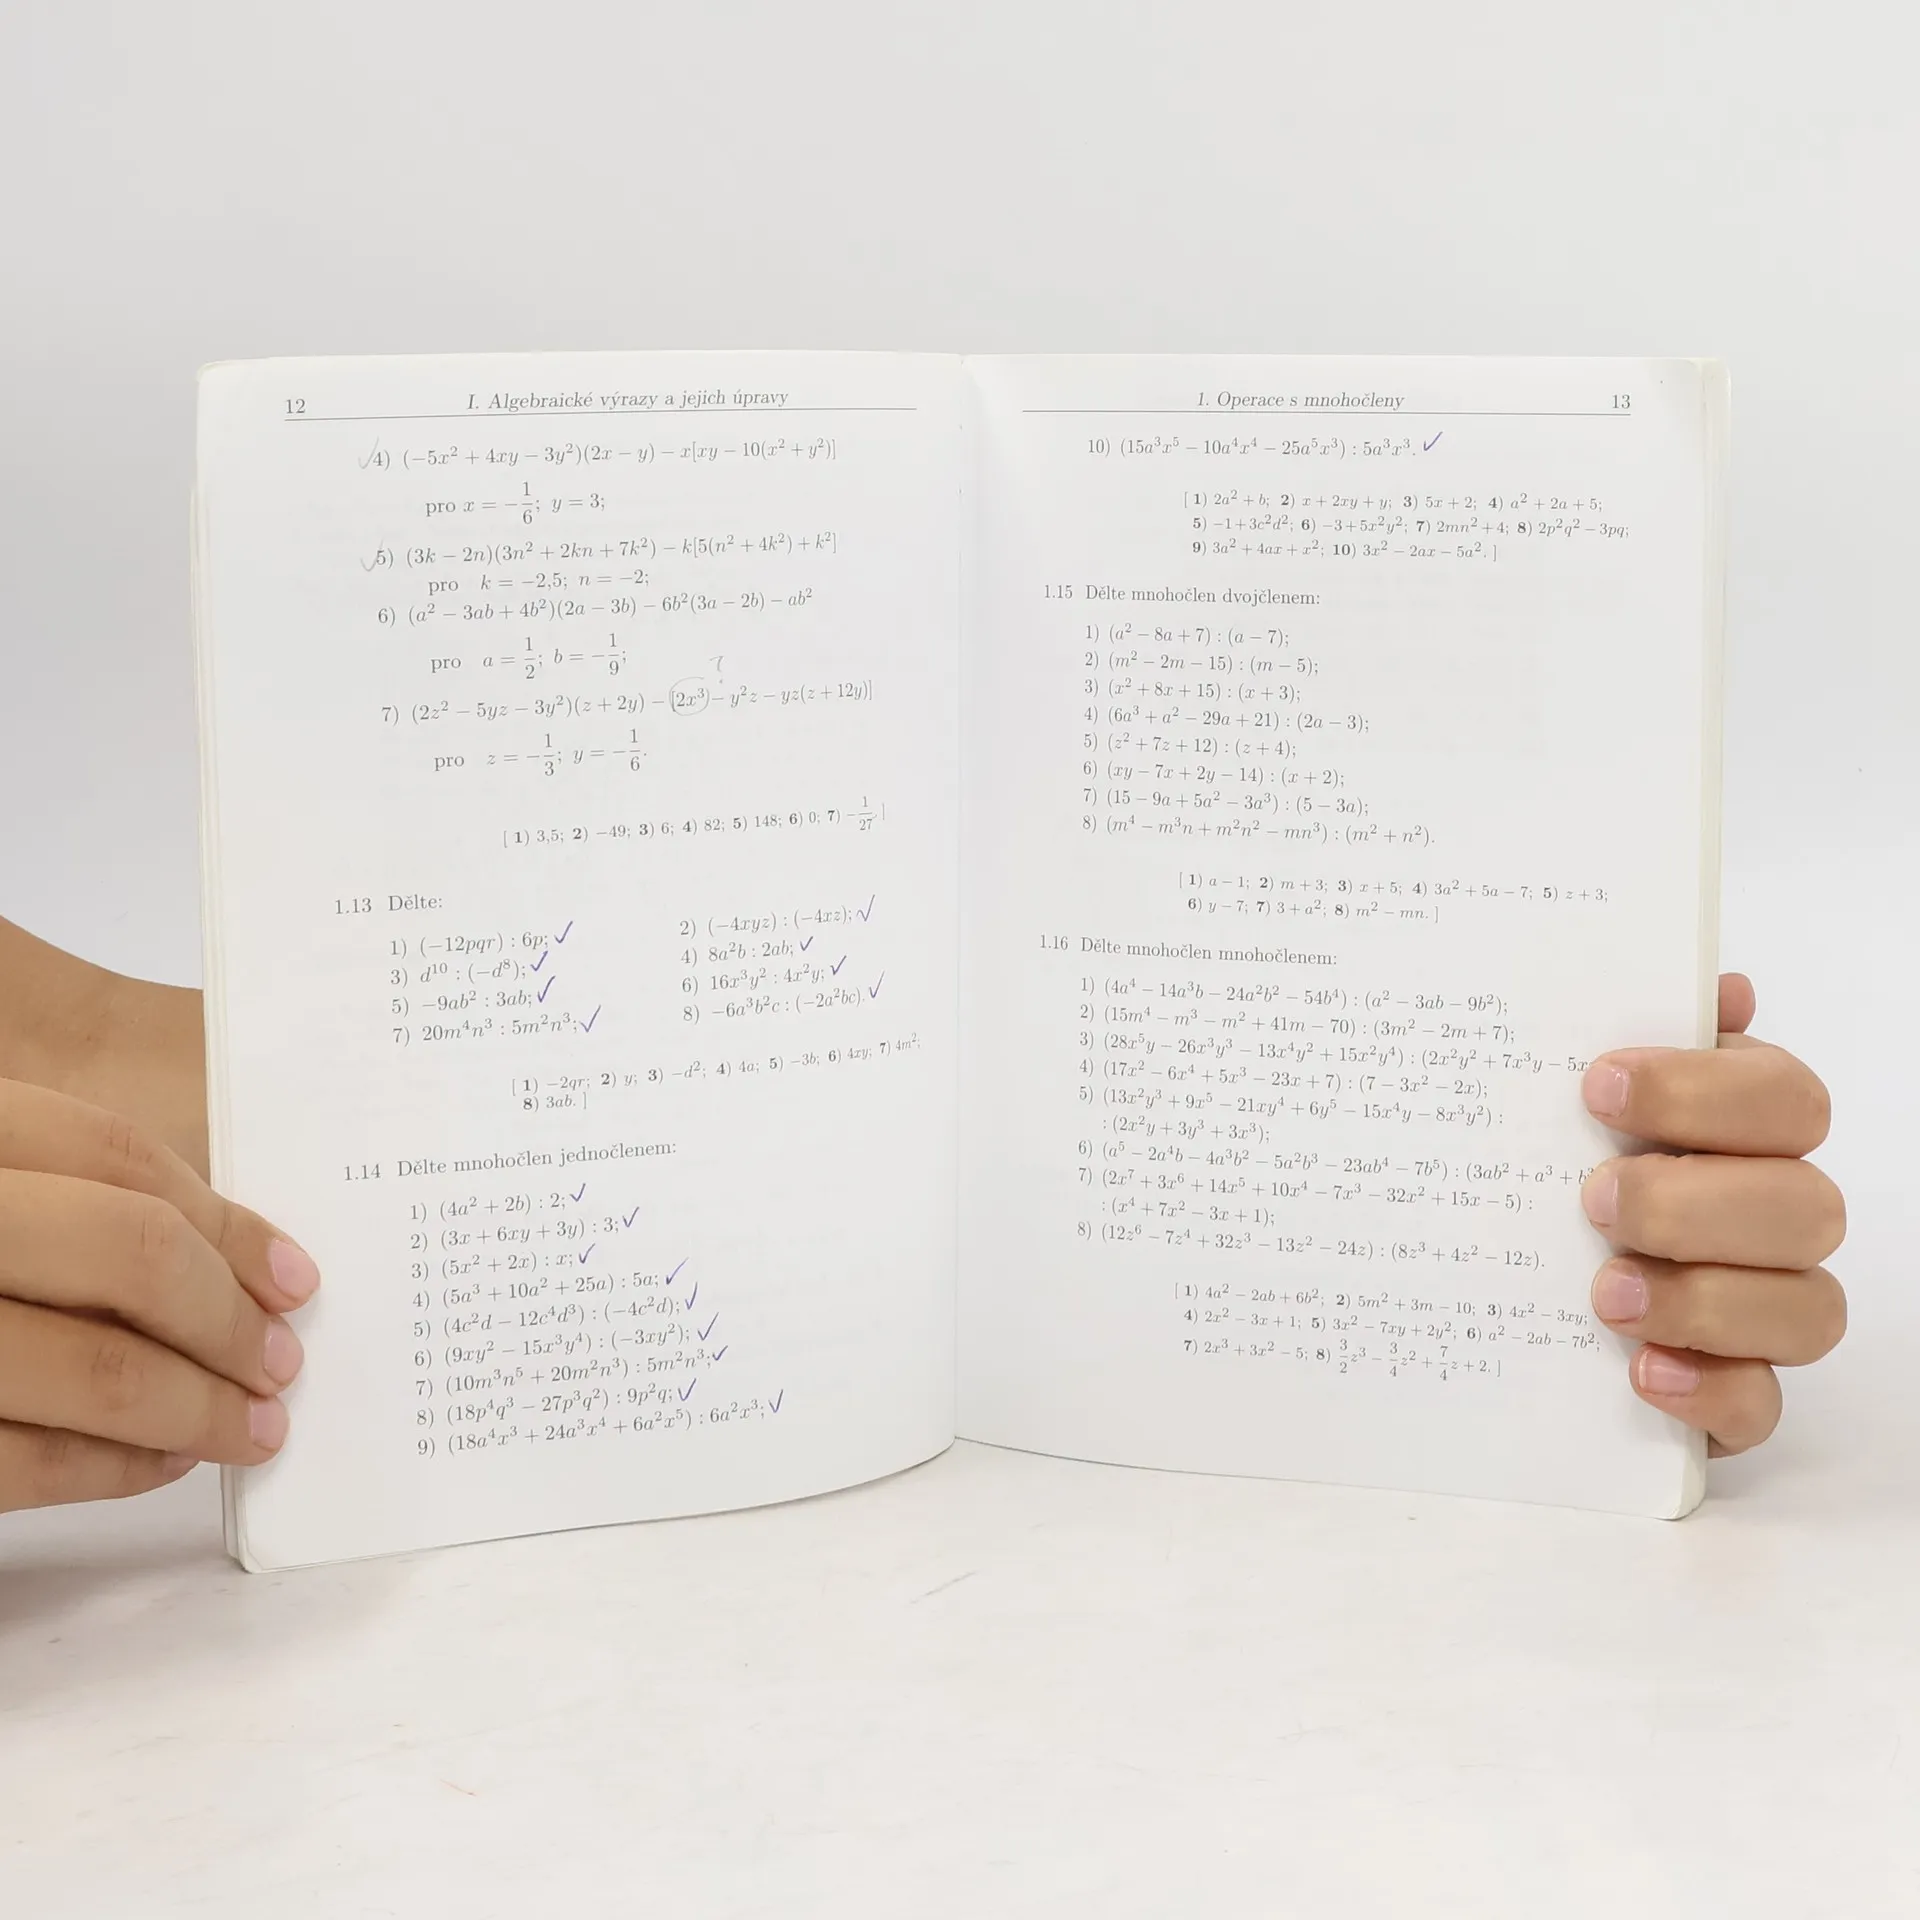 12 I. Algebraické výrazy a jejich úpravy
4) (−5x² + 4xy − 3y²)(2x − y) − x[xy − 10(x² + y²)]
pro x = −1/6; y = 3;
5) (3k − 2n)(3n² + 2kn + 7k²) − k[5(n² + 4k²) + k²]
pro k = −2,5; n = −2;
6) (a² − 3ab + 4b²)(2a − 3b) − 6b²(3a − 2b) − ab²
pro a = 1/2; b = −1/9;
?
7) (2z² − 5yz − 3y²)(z + 2y) − [2x³ − y²z − yz(z + 12y)]
pro z = −1/3; y = −1/6.
[ 1) 3,5; 2) −49; 3) 6; 4) 82; 5) 148; 6) 0; 7) −1/27. ]
1.13 Dělte:
1) (−12pqr) : 6p; 2) (−4xyz) : (−4xz);
3) d¹⁰ : (−d⁸); 4) 8a²b : 2ab;
5) −9ab² : 3ab; 6) 16x³y² : 4x²y;
7) 20m⁴n³ : 5m²n³; 8) −6a³b²c : (−2a²bc).
[ 1) −2qr; 2) y; 3) −d²; 4) 4a; 5) −3b; 6) 4xy; 7) 4m²;
8) 3ab. ]
1.14 Dělte mnohočlen jednočlenem:
1) (4a² + 2b) : 2;
2) (3x + 6xy + 3y) : 3;
3) (5x² + 2x) : x;
4) (5a³ + 10a² + 25a) : 5a;
5) (4c²d − 12c⁴d³) : (−4c²d);
6) (9xy² − 15x³y⁴) : (−3xy²);
7) (10m³n⁵ + 20m²n³) : 5m²n³;
8) (18p⁴q³ − 27p³q²) : 9p²q;
9) (18a⁴x³ + 24a³x⁴ + 6a²x⁵) : 6a²x³;
1. Operace s mnohočleny 13
10) (15a³x⁵ − 10a⁴x⁴ − 25a⁵x³) : 5a³x³.
[ 1) 2a² + b; 2) x + 2xy + y; 3) 5x + 2; 4) a² + 2a + 5;
5) −1 + 3c²d²; 6) −3 + 5x²y²; 7) 2mn² + 4; 8) 2p²q² − 3pq;
9) 3a² + 4ax + x²; 10) 3x² − 2ax − 5a². ]
1.15 Dělte mnohočlen dvojčlenem:
1) (a² − 8a + 7) : (a − 7);
2) (m² − 2m − 15) : (m − 5);
3) (x² + 8x + 15) : (x + 3);
4) (6a³ + a² − 29a + 21) : (2a − 3);
5) (z² + 7z + 12) : (z + 4);
6) (xy − 7x + 2y − 14) : (x + 2);
7) (15 − 9a + 5a² − 3a³) : (5 − 3a);
8) (m⁴ − m³n + m²n² − mn³) : (m² + n²).
[ 1) a − 1; 2) m + 3; 3) x + 5; 4) 3a² + 5a − 7; 5) z + 3;
6) y − 7; 7) 3 + a²; 8) m² − mn. ]
1.16 Dělte mnohočlen mnohočlenem:
1) (4a⁴ − 14a³b − 24a²b² − 54b⁴) : (a² − 3ab − 9b²);
2) (15m⁴ − m³ − m² + 41m − 70) : (3m² − 2m + 7);
3) (28x⁵y − 26x³y³ − 13x⁴y² + 15x²y⁴) : (2x²y² + 7x³y − 5x
4) (17x² − 6x⁴ + 5x³ − 23x + 7) : (7 − 3x² − 2x);
5) (13x²y³ + 9x⁵ − 21xy⁴ + 6y⁵ − 15x⁴y − 8x³y²) :
: (2x²y + 3y³ + 3x³);
6) (a⁵ − 2a⁴b − 4a³b² − 5a²b³ − 23ab⁴ − 7b⁵) : (3ab² + a³ + b³
7) (2x⁷ + 3x⁶ + 14x⁵ + 10x⁴ − 7x³ − 32x² + 15x − 5) :
: (x⁴ + 7x² − 3x + 1);
8) (12z⁶ − 7z⁴ + 32z³ − 13z² − 24z) : (8z³ + 4z² − 12z).
[ 1) 4a² − 2ab + 6b²; 2) 5m² + 3m − 10; 3) 4x² − 3xy;
4) 2x² − 3x + 1; 5) 3x² − 7xy + 2y²; 6) a² − 2ab − 7b²;
7) 2x³ + 3x² − 5; 8) 3/2z³ − 3/4z² + 7/4z + 2. ]